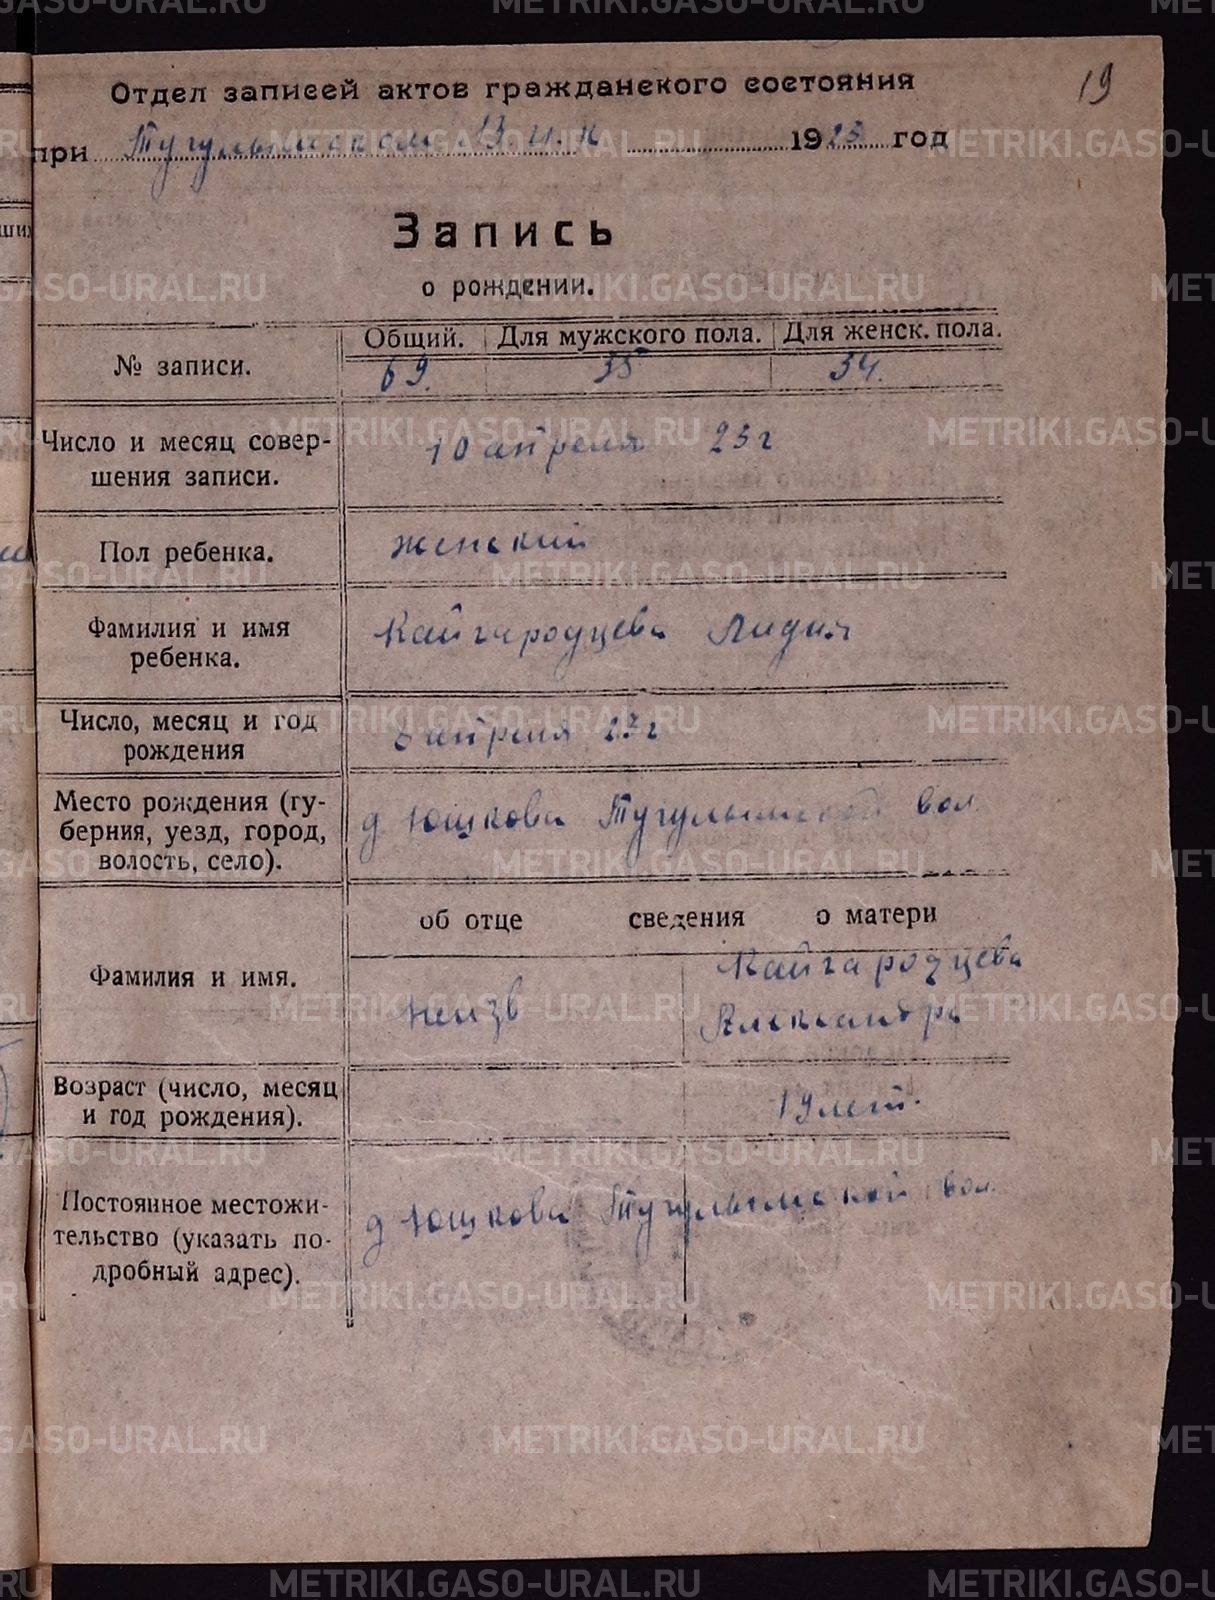 19
Отдел записей актов гражданского состояния
при Тугулымском В.И.К 1923 год
Запись
о рождении.
№ записи.
Общий. Для мужского пола. Для женск. пола.
69. 35 34.
Число и месяц совер-
шения записи.
10 апреля 23 г
Пол ребенка.
женский
Фамилия и имя
ребенка.
Кайгародцева Лидия
Число, месяц и год
рождения
апреля 23 г
Место рождения (гу-
берния, уезд, город,
волость, село).
д Юшкова Тугулымской вол.
об отце сведения о матери
Фамилия и имя.
Неизв
Кайгародцева
Александра
Возраст (число, месяц
и год рождения).
19 лет.
Постоянное местожи-
тельство (указать по-
дробный адрес).
д Юшкова Тугулымской вол.
METRIKI.GASO-URAL.RU